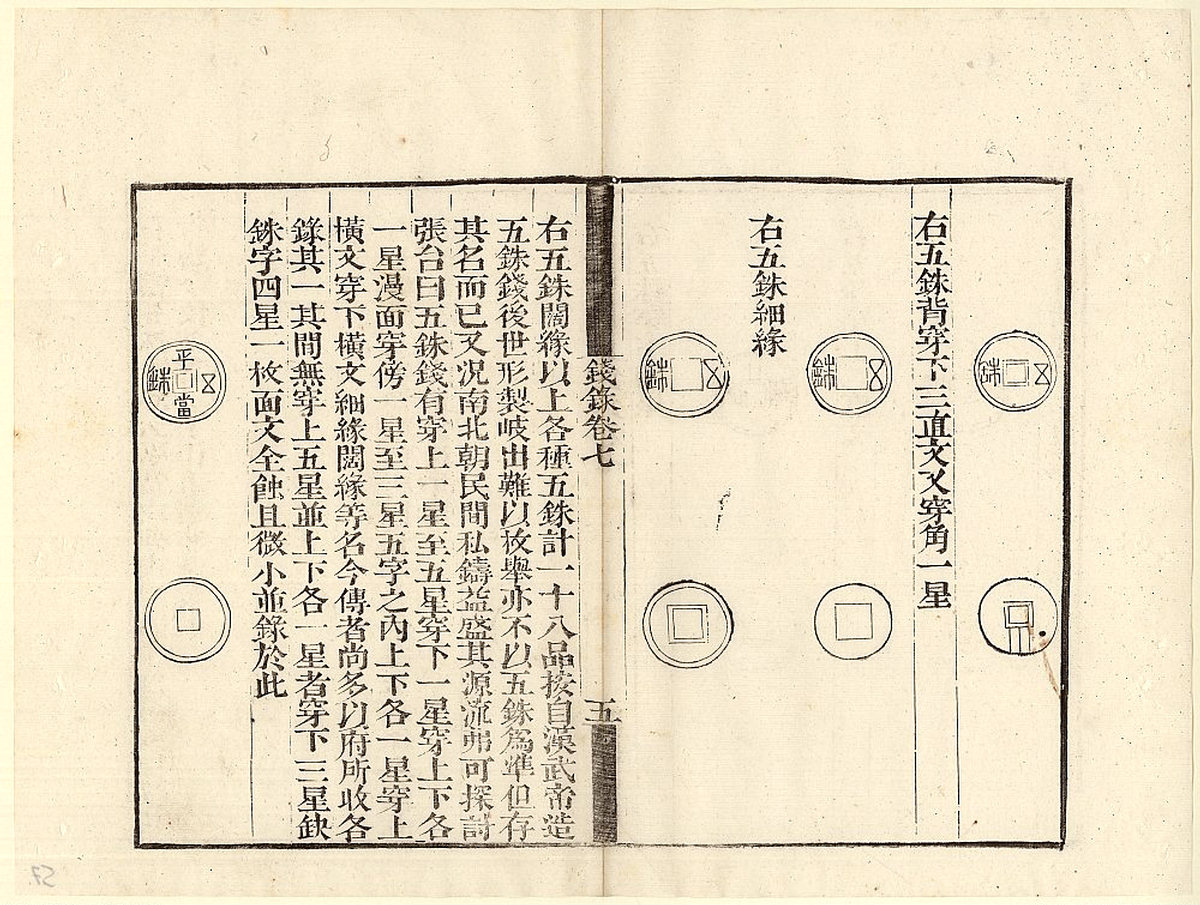 五銖
右五銖背穿下三直文又穿角一星
五銖
右五銖細緣
五銖
錢錄卷七
五
右五銖闊緣以上各種五銖計一十八品按自漢武帝造
五銖錢後世形製岐出難以枚舉亦不以五銖爲準但存
其名而已又況南北朝民間私鑄益盛其源流弗可探討
張台曰五銖錢有穿上一星至五星穿下一星穿上下各
一星漫面穿傍一星至三星五字之內上下各一星穿上
橫文穿下橫文細緣闊緣等名今傳者尚多以府所收各
錄其一其間無穿上五星並上下各一星者穿下三星缺
銖字四星一枚面文全蝕且微小並錄於此
五銖平當
57.